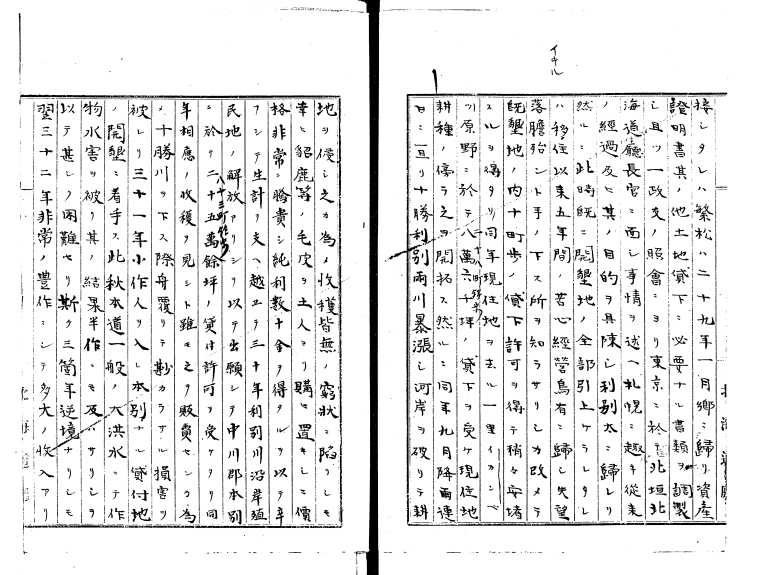 接シタレハ繁松ハ二十九年一月郷ニ歸リ資産
證明書其ノ他土地貸下ニ必要ナル書類ヲ調製
シ且ツ一政丈ノ照會ニヨリ東京ニ於テ北垣北
海道廳長官ニ面シ事情ヲ述ヘ札幌ニ趣キ從来
ノ經過及ヒ其ノ目的ヲ具陳シ利別太ニ歸レリ
然ルニ此時既ニ開墾地ノ全部引上ケラレタレ
ハ移住以来五年間ノ苦心經營烏有ニ歸シ失望
落膽殆ント手ノ下ス所ヲ知ラサリシカ改メテ
既墾地ノ内十町歩ノ貸下許可ヲ得テ稍々安堵
スルヲ得タリ同年現住地ヲ去ル一里イカンベ
ツ原野ニ於テ八萬六千坪ノ貸下ヲ受ケ現住地
耕種ノ傍ラ之ヲ開拓ス然ルニ同年九月降雨連
日ニ亘リ十勝利別両川暴漲シ河岸ヲ破リテ耕
イキル
地ヲ侵シ之カ為メ收穫皆無ノ窮狀ニ陷リシモ
幸ニ貂鹿等ノ毛皮ヲ土人ヨリ購ヒ置キシニ價
格非常ニ騰貴シ純利数十金ヲ得タルヲ以テ辛
フシテ生計ヲ支ヘ越エテ三十年利別川沿岸殖
民地ノ解放アリシヲ以テ出願シテ中川郡本別
ニ於テ二十五萬餘坪ノ貸付許可ヲ受ケタリ同
年相應ノ收穫ヲ見シト雖モ之ヲ販賣センカ為
メ十勝川ヲ下ス際舟覆リテ尠カラサル損害ヲ
被レリ三十一年小作人ヲ入レ本別ナル貸付地
ノ開墾ニ着手ス此秋本道一般ノ大洪水ニテ作
物水害ヲ被リ其ノ結果半作ニモ及ハサリシヲ
以テ甚シク困難セリ斯ク三箇年逆境ナリシモ
翌三十二年非常ノ豊作ニシテ多大ノ收入アリ